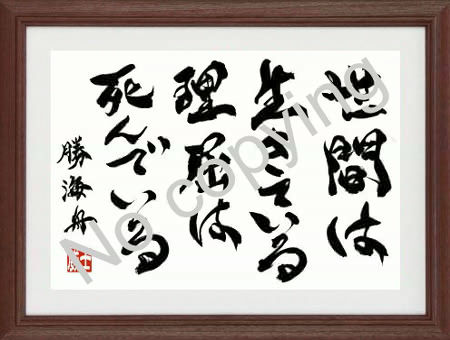 世間は
生きている
理屈は
死んでいる
勝海舟
No copying